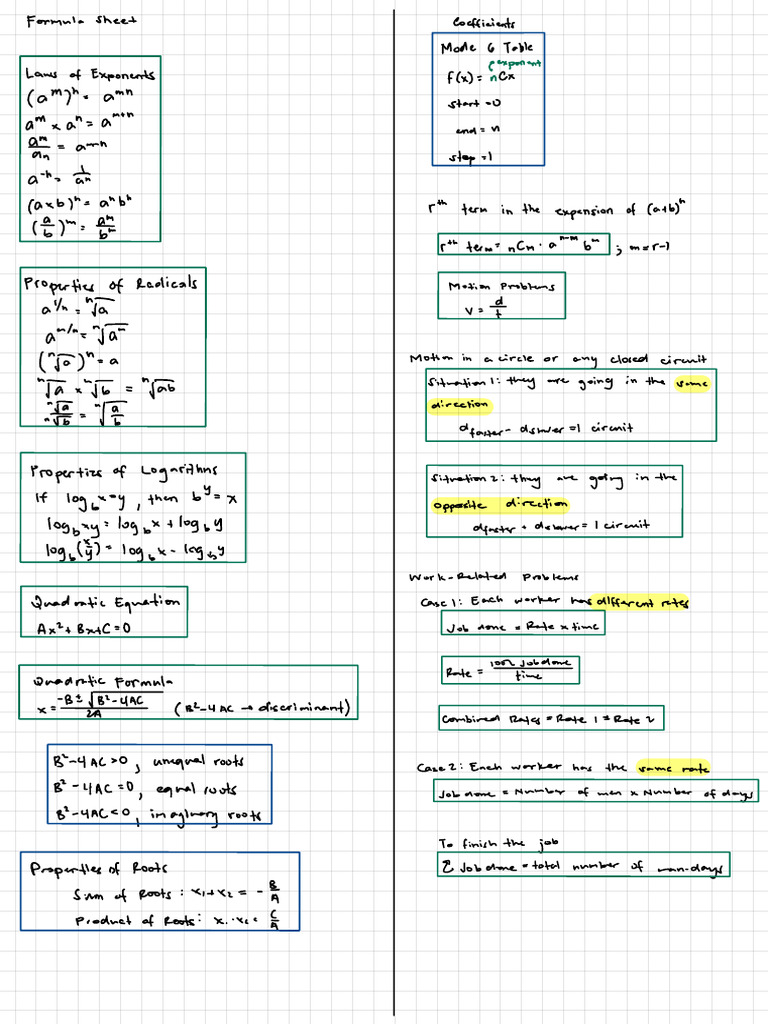 Formula Sheet
Laws of Exponents
(a^m)^n = a^mn
a^m × a^n = a^m+n
a^m/a^n = a^m-n
a^-n = 1/a^n
(a×b)^n = a^n b^n
(a/b)^m = a^m/b^m
Properties of Radicals
a^1/n = ⁿ√a
a^m/n = ⁿ√a^m
(ⁿ√a)^n = a
ⁿ√a × ⁿ√b = ⁿ√ab
ⁿ√a/ⁿ√b = ⁿ√(a/b)
Properties of Logarithms
If log_b x=y, then b^y = x
log_b xy = log_b x + log_b y
log_b(x/y) = log_b x - log_b y
Quadratic Equation
Ax²+Bx+C=0
Quadratic Formula
x = (-B ± √(B²-4AC))/2A (B²-4AC → discriminant)
B²-4AC>0, unequal roots
B²-4AC=0, equal roots
B²-4AC<0, imaginary roots
Properties of Roots
Sum of Roots: x₁+x₂ = -B/A
Product of Roots: x₁·x₂ = C/A
Coefficients
Mode 6 Table
exponent
f(x) = nCx
start =0
end = n
step =1
r^th term in the expansion of (a+b)^n
r^th term = nCm · a^n-m b^m ; m=r-1
Motion Problems
V = d/t
Motion in a circle or any closed circuit
Situation 1: they are going in the same
direction
d_faster - d_slower = 1 circuit
Situation 2: they are going in the
opposite direction
d_faster + d_slower = 1 circuit
Work-Related Problems
Case 1: Each worker has different rates
Job done = Rate x time
Rate = 100% Job done/time
Combined Rates = Rate 1 ± Rate 2
Case 2: Each worker has the same rate
Job done = Number of men x Number of days
To finish the job
Σ Job done = total number of man-days